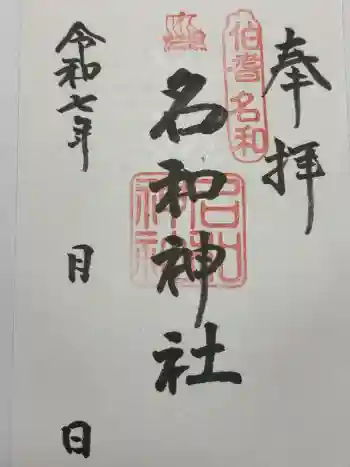 奉拝
伯耆名和
名和神社
名和神社
令和七年
月
日